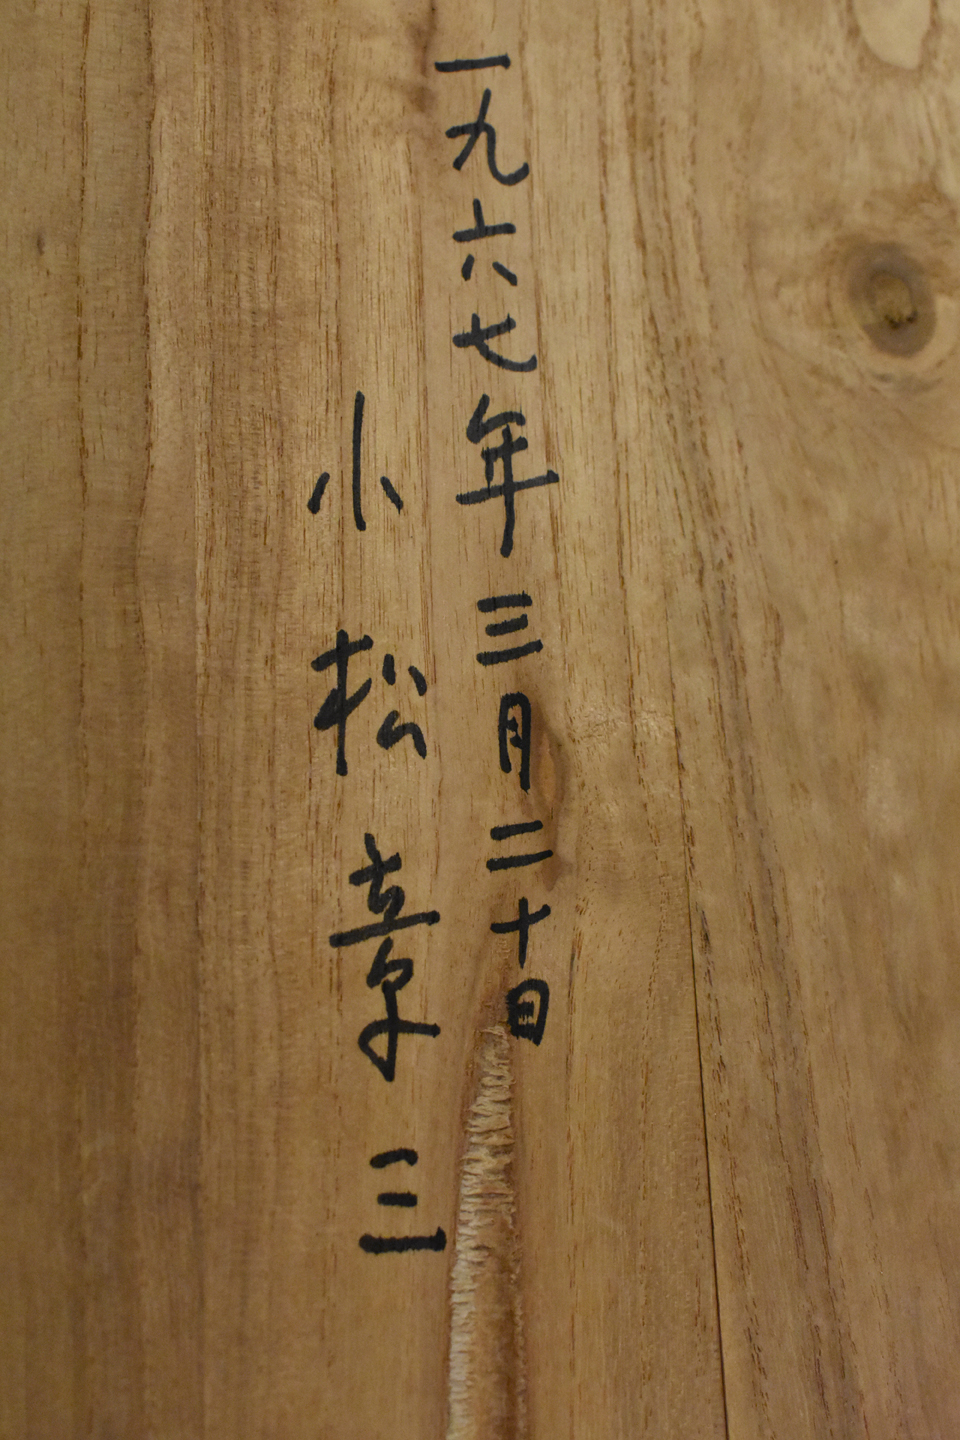 一九六七年三月二十日
小松章三